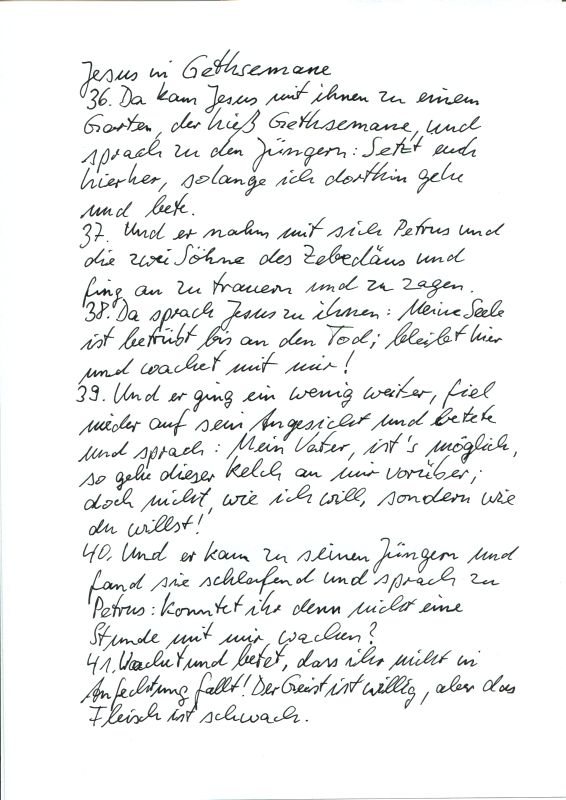 Jesus in Gethsemane
36. Da kam Jesus mit ihnen zu einem
Garten, der hieß Gethsemane, und
sprach zu den Jüngern: Setzt euch
hierher, solange ich dorthin gehe
und bete.
37. Und er nahm mit sich Petrus und
die zwei Söhne des Zebedäus und
fing an zu trauern und zu zagen.
38. Da sprach Jesus zu ihnen: Meine Seele
ist betrübt bis an den Tod; bleibet hier
und wachet mit mir!
39. Und er ging ein wenig weiter, fiel
nieder auf sein Angesicht und betete
und sprach: Mein Vater, ist's möglich,
so gehe dieser Kelch an mir vorüber;
doch nicht, wie ich will, sondern wie
du willst!
40. Und er kam zu seinen Jüngern und
fand sie schlafend und sprach zu
Petrus: Konntet ihr denn nicht eine
Stunde mit mir wachen?
41. Wachet und betet, dass ihr nicht in
Anfechtung fallt! Der Geist ist willig, aber das
Fleisch ist schwach.